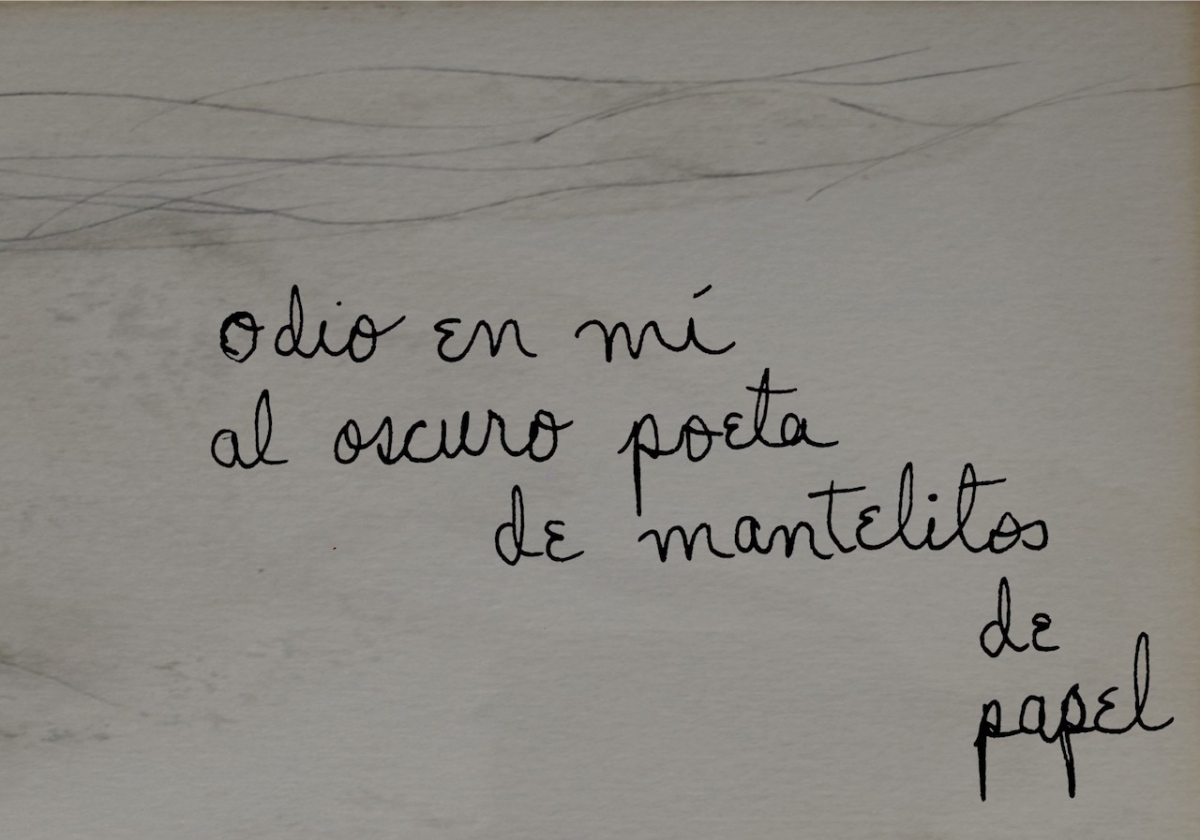 odio en mí
al oscuro poeta
de mantelitos
de
papel